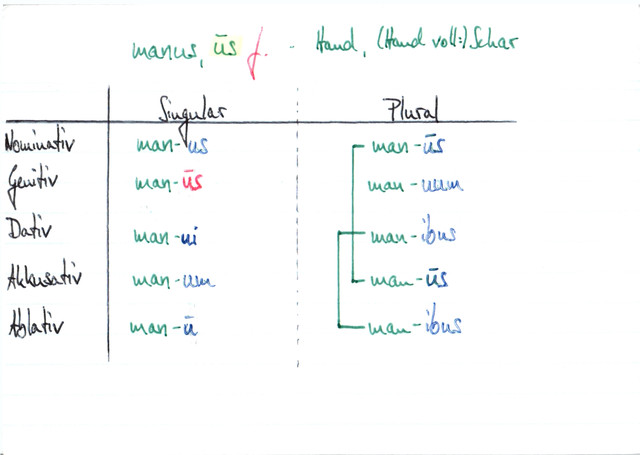 manus, ūs f. - Hand, (Hand voll:) Schar
Singular Plural
Nominativ man-us man-ūs
Genitiv man-ūs man-uum
Dativ man-ui man-ibus
Akkusativ man-um man-ūs
Ablativ man-ū man-ibus